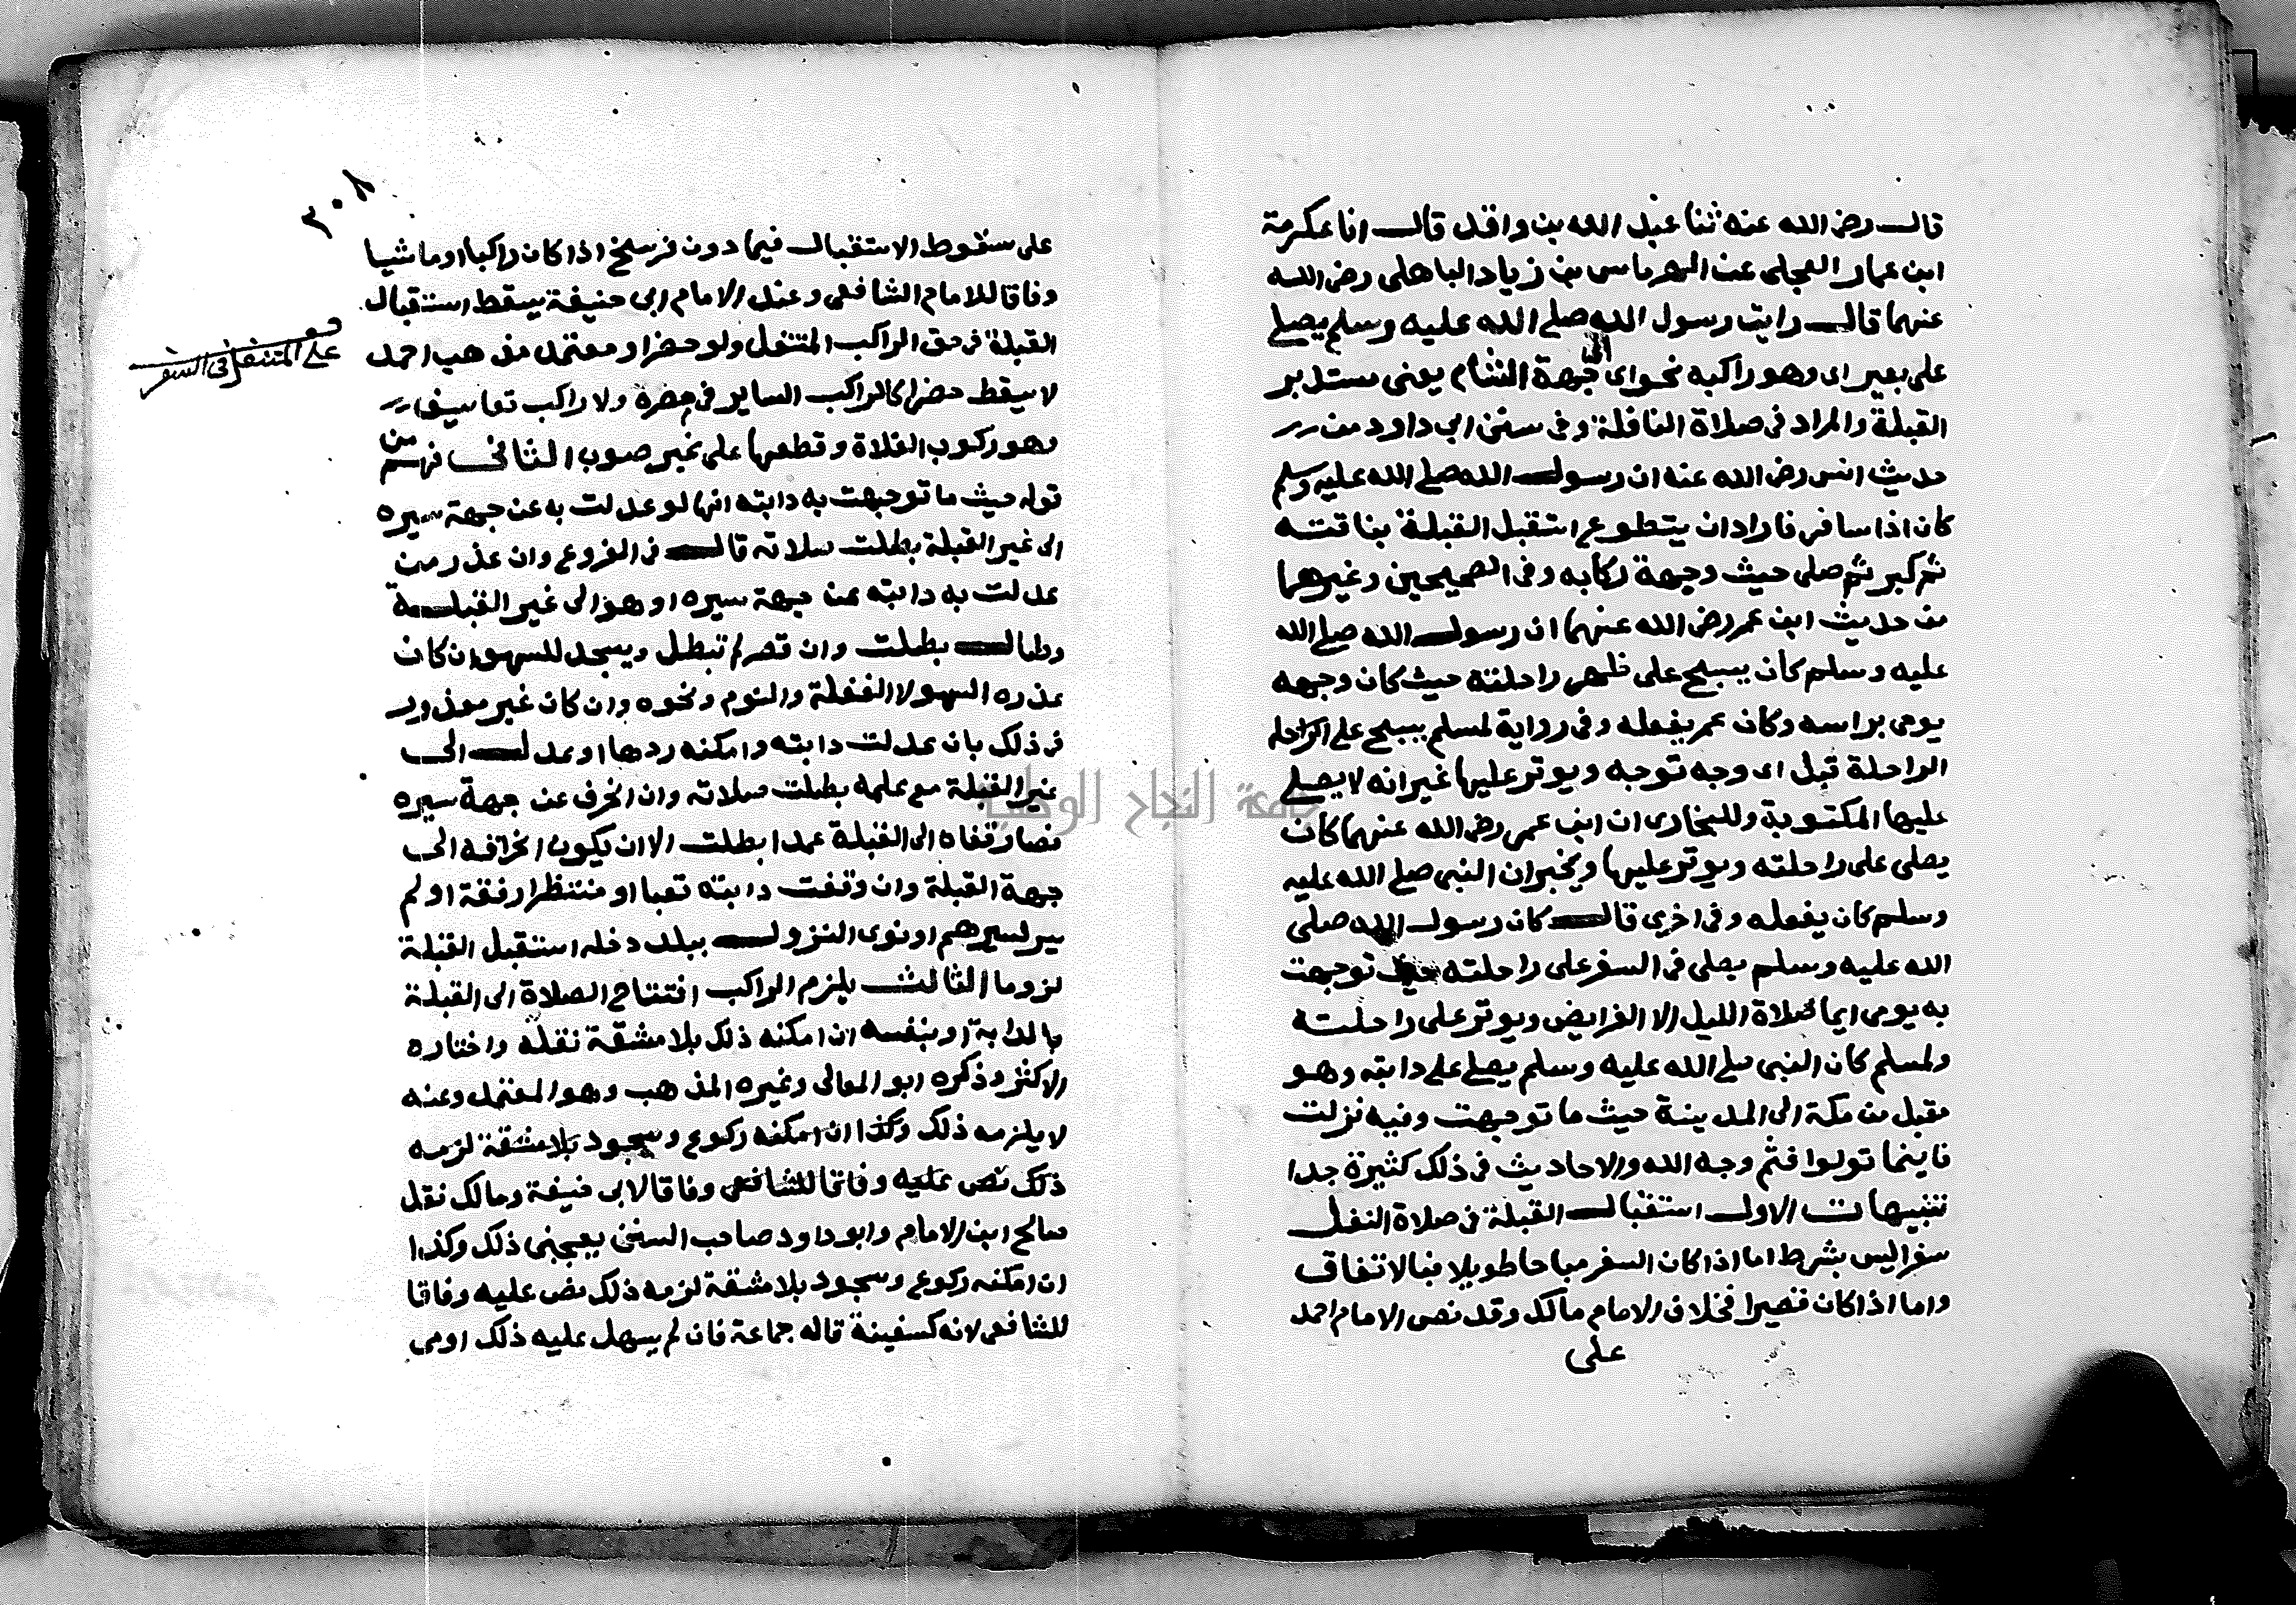 قال رضي الله عنه ثنا عبد الله بن واقد قال انا عكرمة
ابن عمار العجلي عن الهرماس بن زياد الباهلي رضي الله
عنهما قال رايت رسول الله صلى الله عليه وسلم يصلي
على بعير اى وهو راكبه نحو اى جهة الشام يعني مستدبر
القبلة والمراد في صلاة النافلة وفي سنن ابي داود من
حديث انس رضي الله عنه ان رسول الله صلى الله عليه وسلم
كان اذا سافر فاراد ان يتطوع استقبل القبلة بناقته
ثم كبر ثم صلى حيث وجهة ركابه وفي الصحيحين وغيرهما
من حديث ابن عمر رضي الله عنهما ان رسول الله صلى الله
عليه وسلم كان يسبح على ظهر راحلته حيث كان وجهه
يومى براسه وكان عمر يفعله وفي رواية لمسلم يسبح على الراحلة
الراحلة قبل اى وجه توجه ويوتر عليها غير انه لا يصلي
عليها المكتوبة وللبخارى ان ابن عمر رضي الله عنهما كان
يصلى على راحلته ويوتر عليها ويخبر ان النبي صلى الله عليه
وسلم كان يفعله وفي اخرى قال كان رسول الله صلى
الله عليه وسلم يصلى في السفر على راحلته حيث توجهت
به يومى ايما صلاة الليل الا الفرايض ويوتر على راحلته
ولمسلم كان النبي صلى الله عليه وسلم يصلى على دابته وهو
مقبل من مكة الى المدينة حيث ما توجهت وفيه نزلت
فاينما تولوا فثم وجه الله والاحاديث في ذلك كثيرة جدا
تنبيهات الاول استقبال القبلة في صلاة النفل
سفرا ليس بشرط اما اذا كان السفر مباحا طويلا فبالاتفاق
واما اذا كان قصيرا فخلاف الامام مالك وقد نص الامام احمد
على
٣٠٨
على سقوط الاستقبال فيما دون فرسخ اذا كان راكبا او ماشيا
وفاقا للامام الشافعي وعند الامام ابي حنيفة يسقط استقبال
القبلة في حق الراكب المتنفل ولو حضرا ومعتمد مذهب احمد
لا يسقط حضرا كالراكب الساير في مصره ولا راكب تعاسيف
وهو ركوب الفلاة وقطعها على غير صوب الثاني فهم من
قوله حيث ما توجهت به دابته انها لو عدلت به عن جهة سيره
الى غير القبلة بطلت صلاته قال في الفروع وان عذر من
عدلت به دابته عن جهة سيره او هو الى غير القبلة
وطال بطلت وان قصر لم تبطل ويسجد للسهو ان كان
عذره السهو لا الغفلة والنوم ونحوه وان كان غير معذور
في ذلك بان عدلت دابته وامكنه ردها او عدل الى
غير القبلة مع علمه بطلت صلاته وان انحرف عن جهة سيره
فصار قفاه الى القبلة عمدا بطلت الا ان يكون انحرافه الى
جهة القبلة وان وقفت دابته تعبا او منتظرا رفقة او لم
يسر لسيرهم او نوى النزول ببلد دخله استقبل القبلة
لزوما الثالث يلزم الراكب افتتاح الصلاة الى القبلة
بالدابة او بنفسه ان امكنه ذلك بلا مشقة نقله واختاره
الاكثر وذكره ابو المعالى وغيره المذهب وهو المعتمد وعنه
لا يلزمه ذلك وكذا ان امكنه ركوع وسجود بلا مشقة لزمه
ذلك نص عليه وفاقا للشافعي وفاقا لابي حنيفة ومالك نقل
صالح ابن الامام وابو داود صاحب السنن يعجبني ذلك وكذا
ان امكنه ركوع وسجود بلا مشقة لزمه ذلك نص عليه وفاقا
للشافعي لانه كسفينة قاله جماعة فان لم يسهل عليه ذلك اومى
على المتنفل في السفر
جامعة النجاح الوطنية